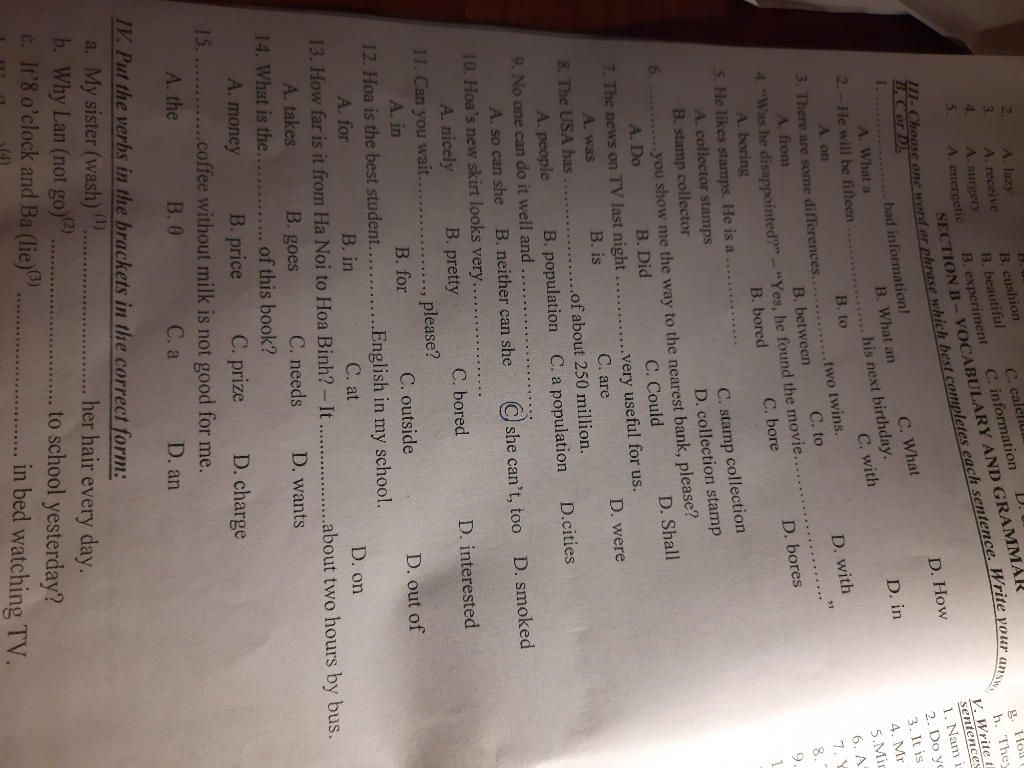 2. A. lazy B. cushion
3. A. receive B. beautiful C. information
4. A. surgery B. experiment
5. A. energetic
SECTION B – VOCABULARY AND GRAMMAR
III- Choose one word or phrase which best completes each sentence. Write your
B, C or D).
1. ............... bad information!
A. What a B. What an C. What D. How
2. – He will be fifteen ............... his next birthday.
A. on B. to C. with D. in
3. There are some differences...............two twins.
A. from B. between C. to D. with
4. “Was he disappointed?” – “Yes, he found the movie...............”
A. boring B. bored C. bore D. bores
5. He likes stamps. He is a ...............
A. collector stamps C. stamp collection
B. stamp collector D. collection stamp
6. ............you show me the way to the nearest bank, please?
A. Do B. Did C. Could D. Shall
7. The news on TV last night ............very useful for us.
A. was B. is C. are D. were
8. The USA has ...............of about 250 million.
A. people B. population C. a population D.cities
9. No one can do it well and ...............
A. so can she B. neither can she C. she can’t, too D. smoked
10. Hoa’s new skirt looks very...............
A. nicely B. pretty C. bored D. interested
11. Can you wait..............., please?
A. in B. for C. outside D. out of
12. Hoa is the best student............English in my school.
A. for B. in C. at D. on
13. How far is it from Ha Noi to Hoa Binh? – It...............about two hours by bus.
A. takes B. goes C. needs D. wants
14. What is the............ of this book?
A. money B. price C. prize D. charge
15. ...............coffee without milk is not good for me.
A. the B. θ C. a D. an
IV. Put the verbs in the brackets in the correct form:
a. My sister (wash) (1) .............................. her hair every day.
b. Why Lan (not go)(2) .............................. to school yesterday?
c. It’8 o’clock and Ba (lie)(3) .............................. in bed watching TV.
(4)
g. Hoa
h. They
V. Write
sentences
1. Nam
2. Do
3. It is
4. Mr
5.
6. A
7.
8.
9.